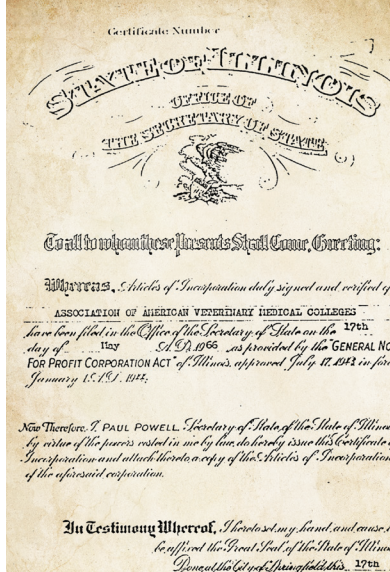 Certificate Number
STATE OF ILLINOIS
OFFICE OF
THE SECRETARY OF STATE
To all to whom these Presents Shall Come, Greeting:
Whereas, Articles of Incorporation duly signed and verified of
ASSOCIATION OF AMERICAN VETERINARY MEDICAL COLLEGES
have been filed in the Office of the Secretary of State on the 17th
day of May A.D. 1966 as provided by the "GENERAL NO
FOR PROFIT CORPORATION ACT" of Illinois, approved July 17, 1943, in for
January 1, A.D. 1944;
Now Therefore, I, PAUL POWELL, Secretary of State, of the State of Illinoi
by virtue of the powers vested in me by law, do hereby issue this Certificate o
Incorporation and attach thereto, a copy of the Articles of Incorporation
of the aforesaid corporation.
In Testimony Whereof, I hereto set my hand, and cause
be affixed the Great Seal of the State of Illinoi
Done at the City of Springfield, this 17th